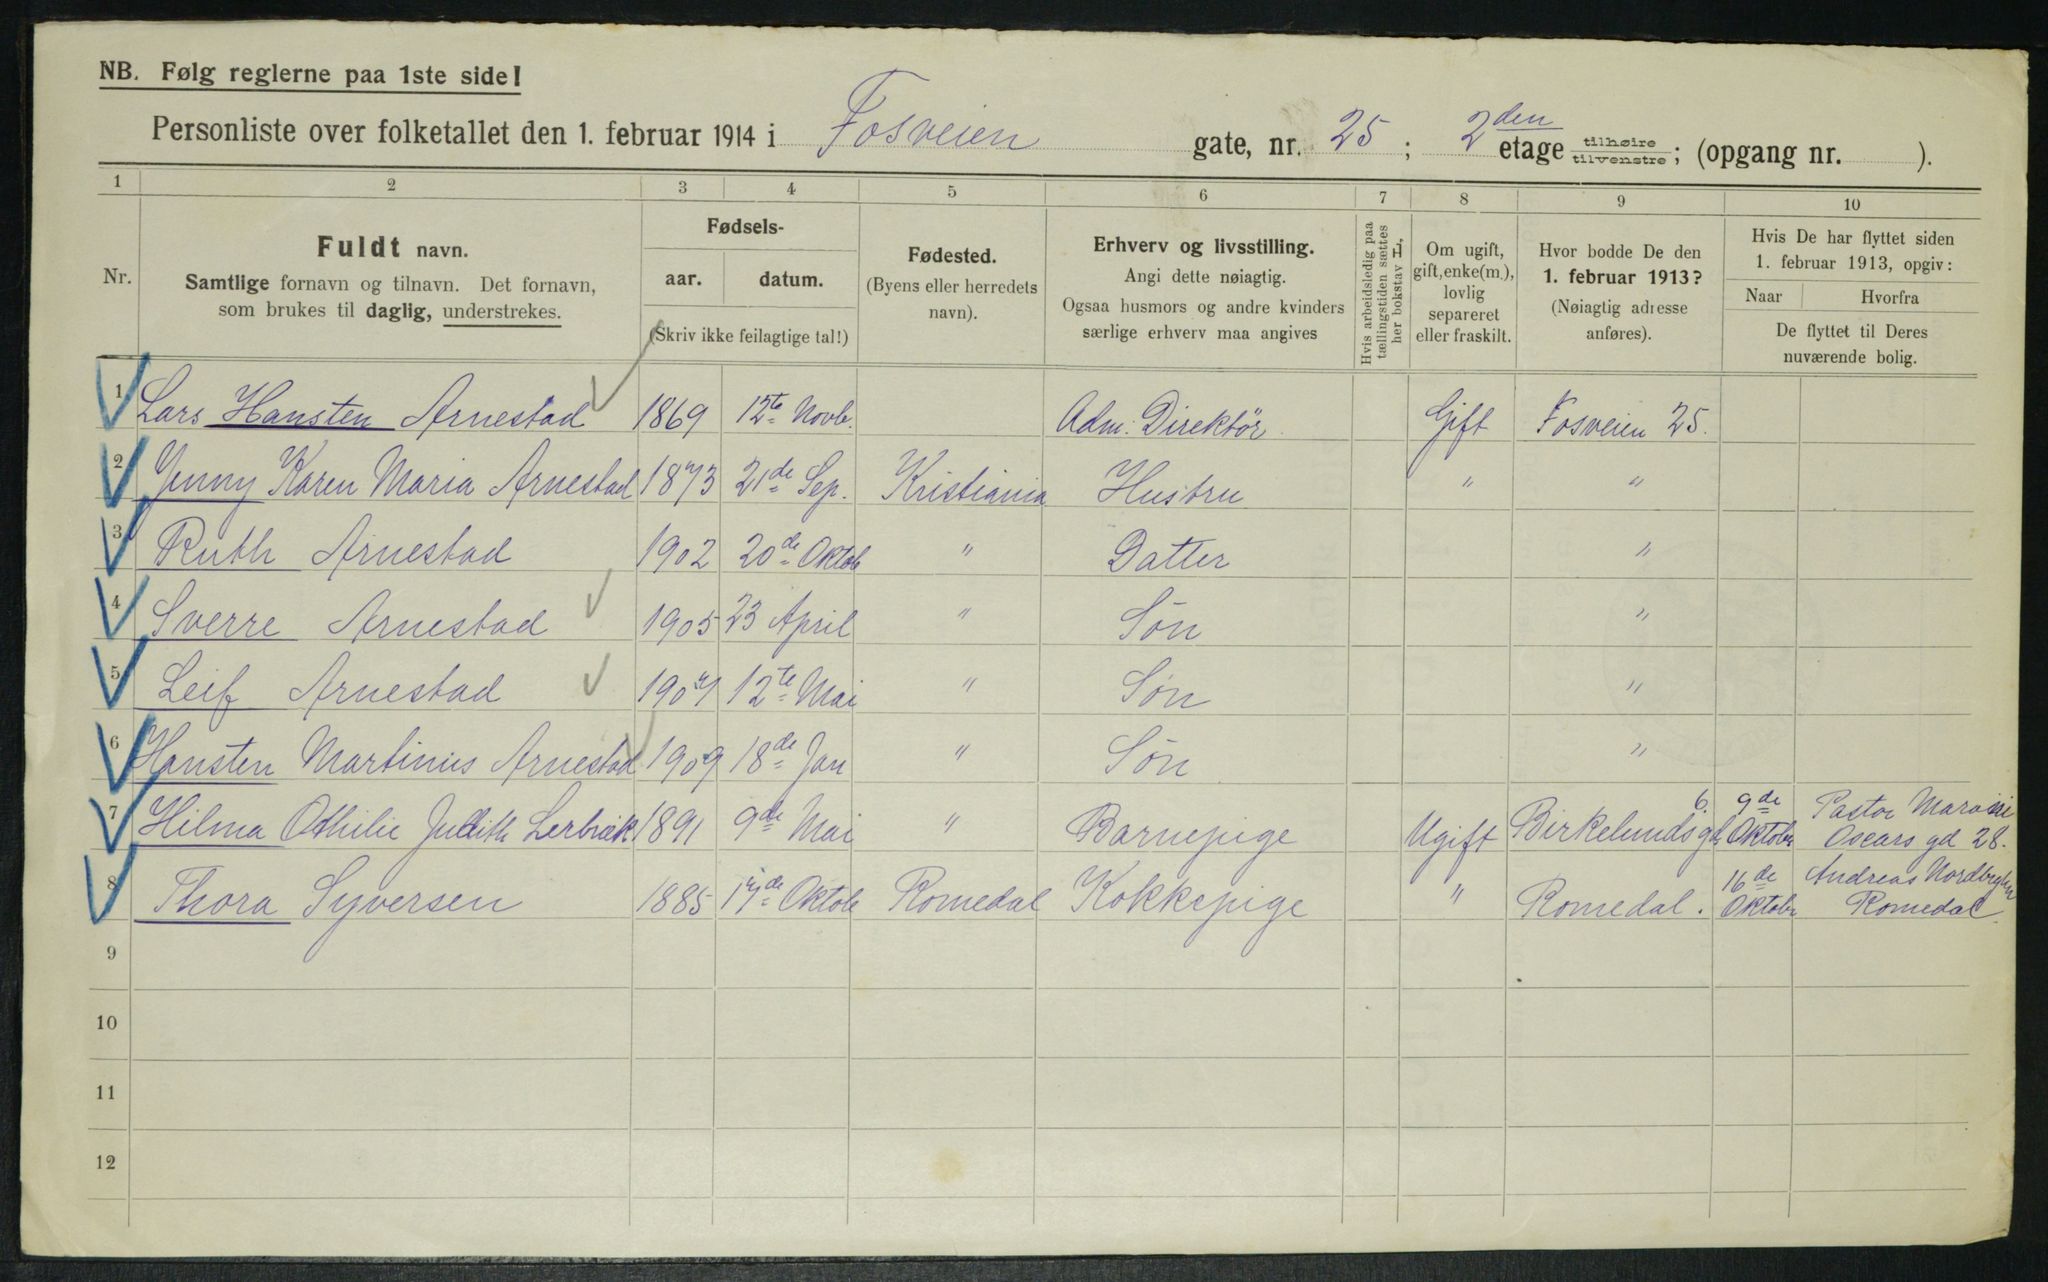 NB. Følg reglerne paa 1ste side!
Personliste over folketallet den 1. februar 1914 i Fosveien gate, nr. 25 ; 2den etage tilhøire tilvenstre ; (opgang nr. ).
1 2 3 4 5 6 7 8 9 10
Nr.
Fuldt navn.
Samtlige fornavn og tilnavn. Det fornavn,
som brukes til daglig, understrekes.
Fødsels-
aar. datum.
(Skriv ikke feilagtige tal!)
Fødested.
(Byens eller herredets
navn).
Erhverv og livsstilling.
Angi dette nøiagtig.
Ogsaa husmors og andre kvinders
særlige erhverv maa angives
Hvis arbeidsledig paa
tællingstiden sættes
her bokstav L.
Om ugift,
gift, enke(m.),
lovlig
separeret
eller fraskilt.
Hvor bodde De den
1. februar 1913?
(Nøiagtig adresse
anføres).
Hvis De har flyttet siden
1. februar 1913, opgiv:
Naar Hvorfra
De flyttet til Deres
nuværende bolig.
1 Lars Hansten Arnestad 1869 12te Novb. Adm. Direktör Gift Fosveien 25.
2 Jenny Karen Maria Arnestad 1873 21de Sep. Kristiania Hustru " "
3 Ruth Arnestad 1902 20de Oktob " Datter "
4 Sverre Arnestad 1905 23 April " Søn "
5 Leif Arnestad 1907 12te Mai " Søn "
6 Hansten Martinus Arnestad 1909 18de Jan " Søn "
7 Hilma Othilie Judith Lerbræk 1891 9de Mai " Barnepige Ugift Birkelunds gd. 6. 9de Oktobr Pastor
Oscars gd 28.
8 Thora Syversen 1885 17de Oktob Romedal Kokkepige " Romedal. 16de Oktobr Andreas
Romedal.
9
10
11
12